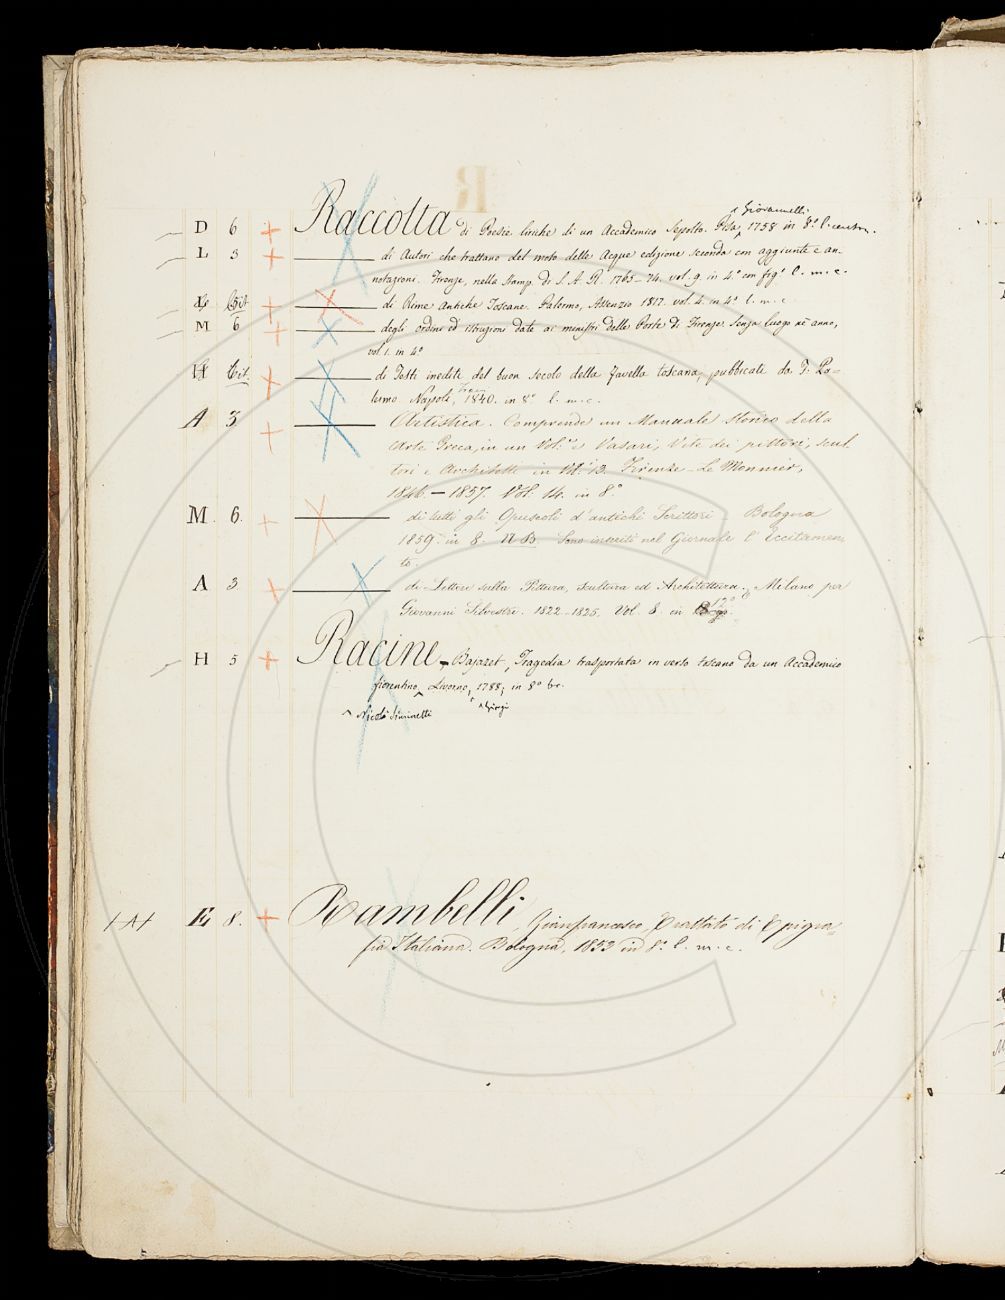 R
D 6 + Raccolta di Poesie liriche di un Accademico Sepolto. Pisa, ^ Giovannelli 1758 in 8.º l. cart.
L 3 + ——— di Autori che trattano del moto delle Acque edizione seconda con aggiunte e an-
notazioni. Firenze, nella Stamp. di S. A. R. 1765-74. vol. 9. in 4.º con fig.e l. m. c.
+ ——— di Rime Antiche Toscane. Palermo, Assenzio 1817. vol. 4. in 4.º l. m. c.
M 6 + ——— degli ordini ed istruzioni date ai ministri delle Porte di Firenze. Senza luogo nè anno,
vol. 1. in 4.º
H Cit. + ——— di Testi inedite del buon secolo della favella toscana, pubblicati da F. Pa-
lermo Napoli, 1840. in 8.º l. m. c.
A 3 + ——— Artistica. Comprende un Manuale Storico della
Arte Greca, in un Vol. e Vasari, Vite dei pittori, scul
tori e Architetti in Vol. 13. Firenze - Le Monnier,
1846. — 1857. Vol. 14. in 8.º
M. 6. + ——— di tutti gli Opuscoli d'antichi Scrittori - Bologna
1859. in 8. N B. Sono inseriti nel Giornale l'Eccitamen
to.
A 3 + ——— di Lettere sulla Pittura, scultura ed Architettura. Milano per
Giovanni Silvestri. 1822-1825. Vol. 8. in
H 5 + Racine, Bajazet, Tragedia trasportata in verso toscano da un Accademico
fiorentino ^ Livorno, ^ 1788, in 8.º br.
^ Nicolò Siminetti ^ Giorgi
E 8. + Rambelli, Gianfrancesco, Trattato di Epigra=
fia Italiana. Bologna, 1853 in 8.º l. m. c.